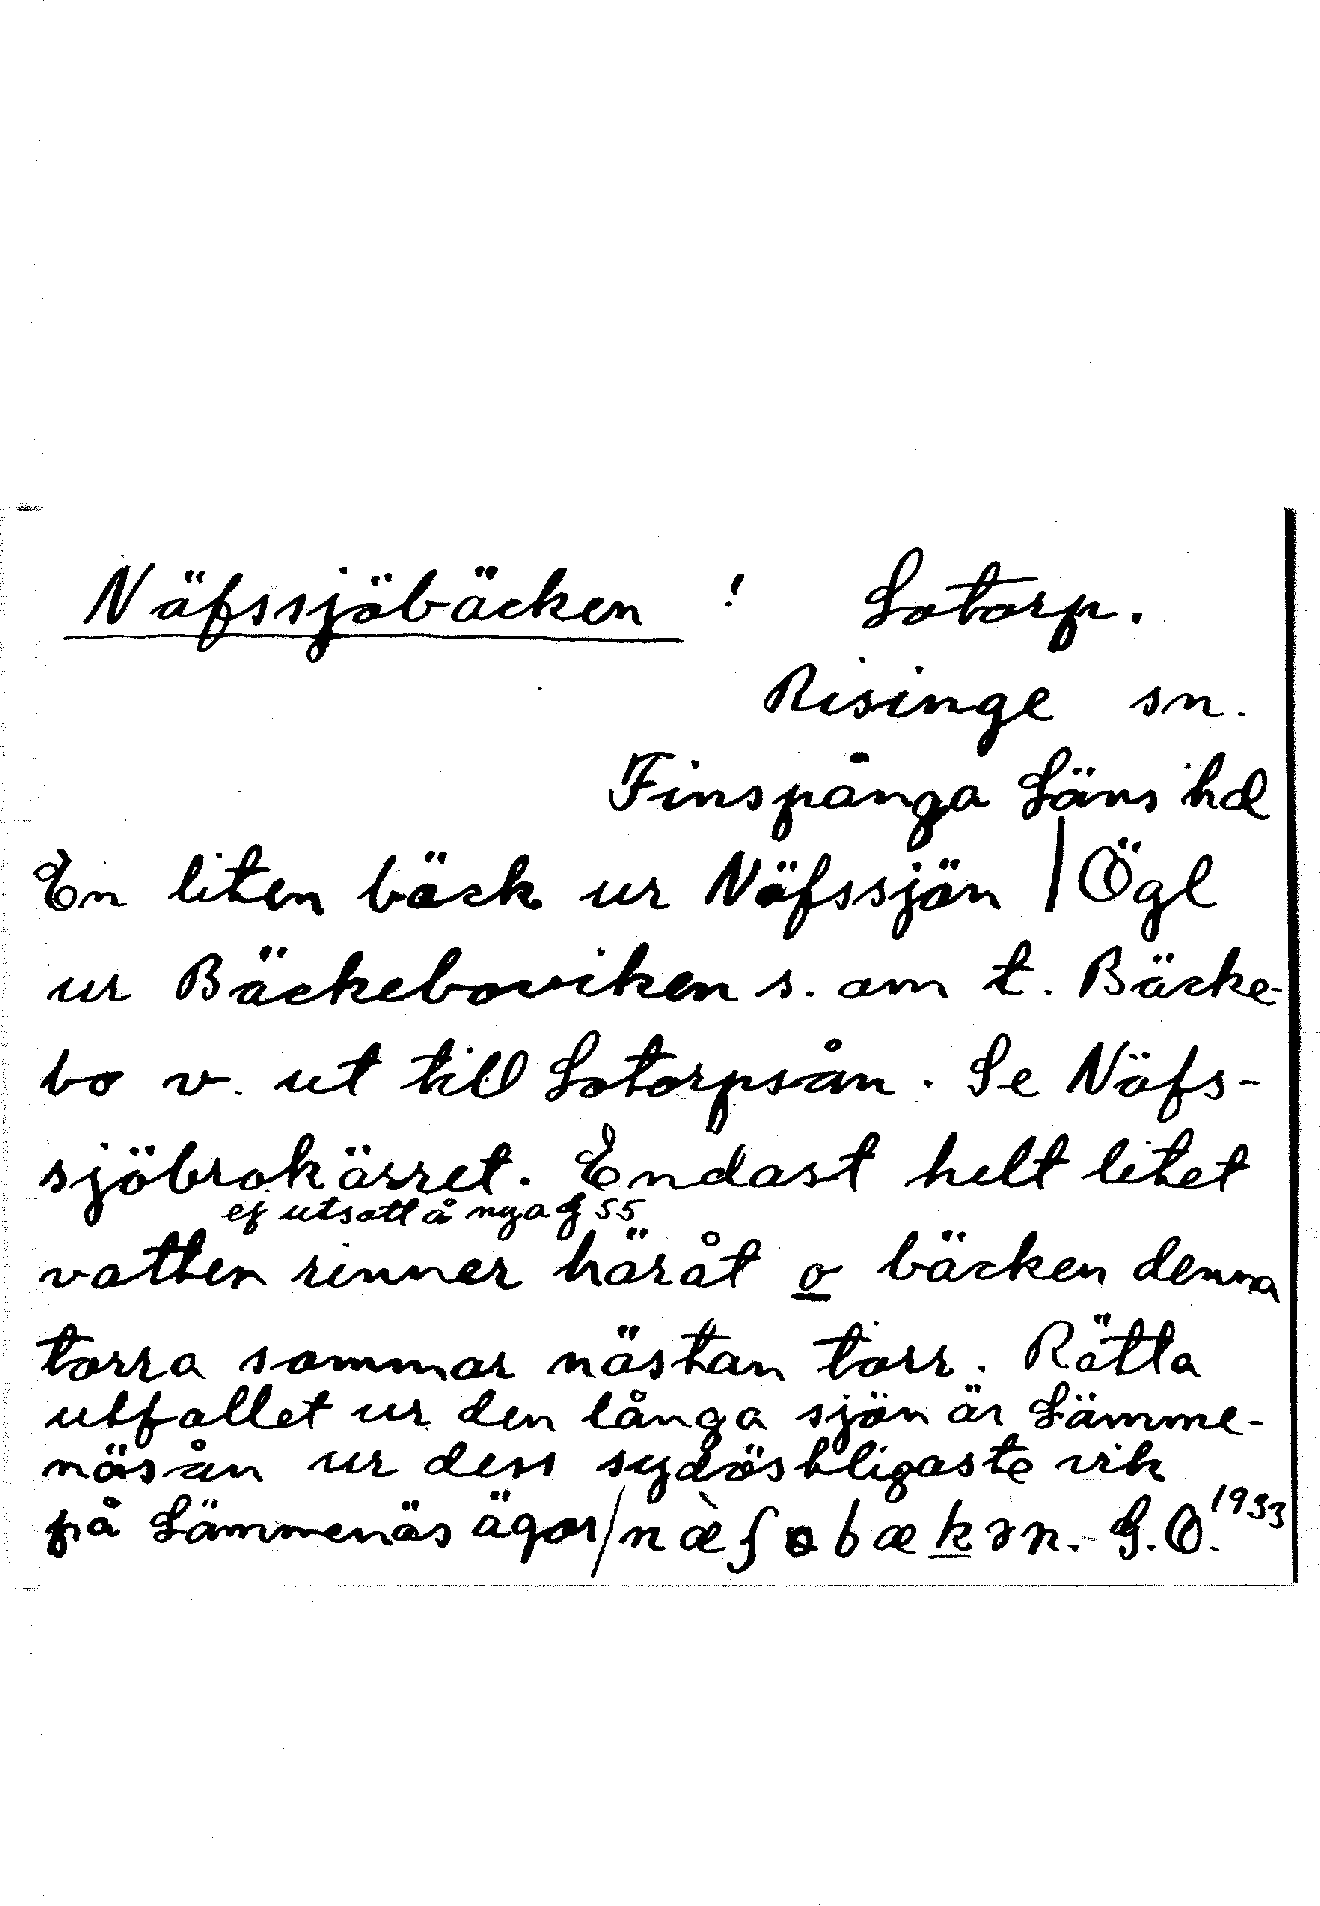 Näfssjöbäcken ! Lotorp.
Risinge sn.
Finspånga Läns hd
En liten bäck ur Näfssjön | Ögl
ur Bäckeboviken s. om t. Bäcke-
bo v. ut till Lotorpsån. Se Näfs-
sjöbrokärret. Endast helt litet
ej utsatt å nya 55
vatten rinner häråt o bäcken denna
torra sommar nästan torr. Rätta
utfallet ur den långa sjön är Lämme-
näsån ur dess sydöstligaste vik
på Lämmenäs ägor/næ̀ʃɵbækən. G.O. 1933